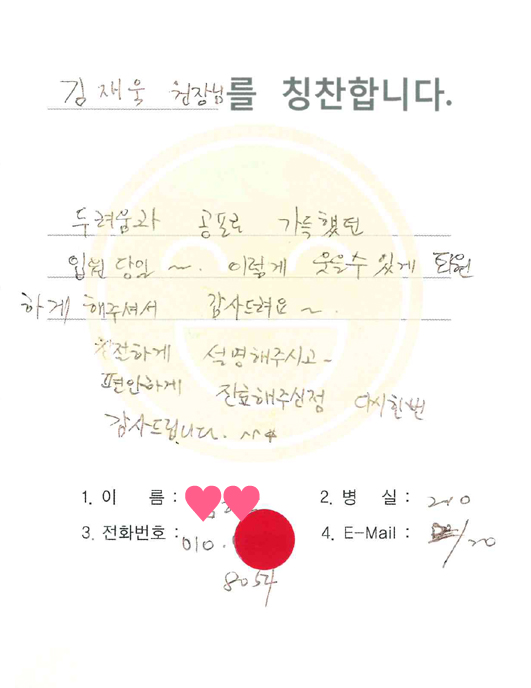 김재욱 원장님를 칭찬합니다.
두려움과 공포로 가득했던
입원 당일 ~. 이렇게 웃을수 있게 퇴원
하게 해주셔서 감사드려요 ~.
친절하게 설명해주시고~
편안하게 진료해주신점 다시한번
감사드립니다. ^^
1. 이 름 :
2. 병 실 : 210
3. 전화번호 : 010.
4. E-Mail : /20